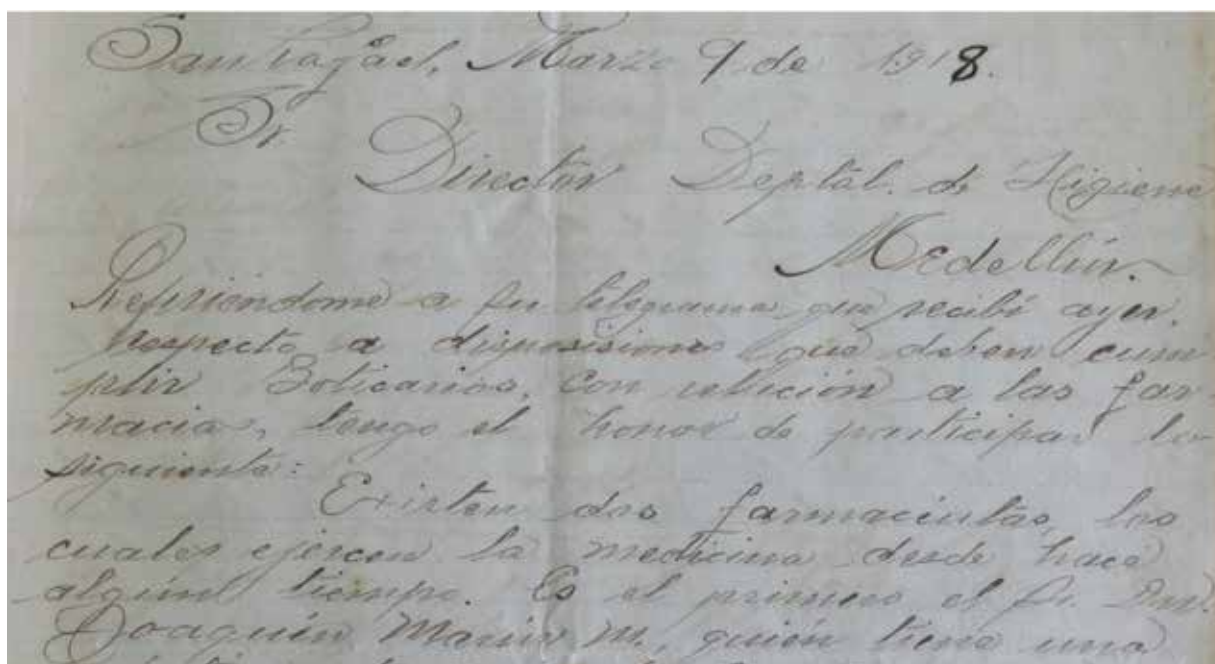 San Rafael, Marzo 9 de 1918.
Sr.
Director Deptal. de Higiene
Medellín.
Refiriéndome a su telegrama que recibí ayer,
respecto a disposiciones que deben cum
plir Boticarios, con relación a las far
macias, tengo el honor de participar lo
siguiente:
Existen dos farmaceutas, los
cuales ejercen la medicina desde hace
algún tiempo. Es el primero el Sr. Dn.
Joaquín Marín M., quién tiene una